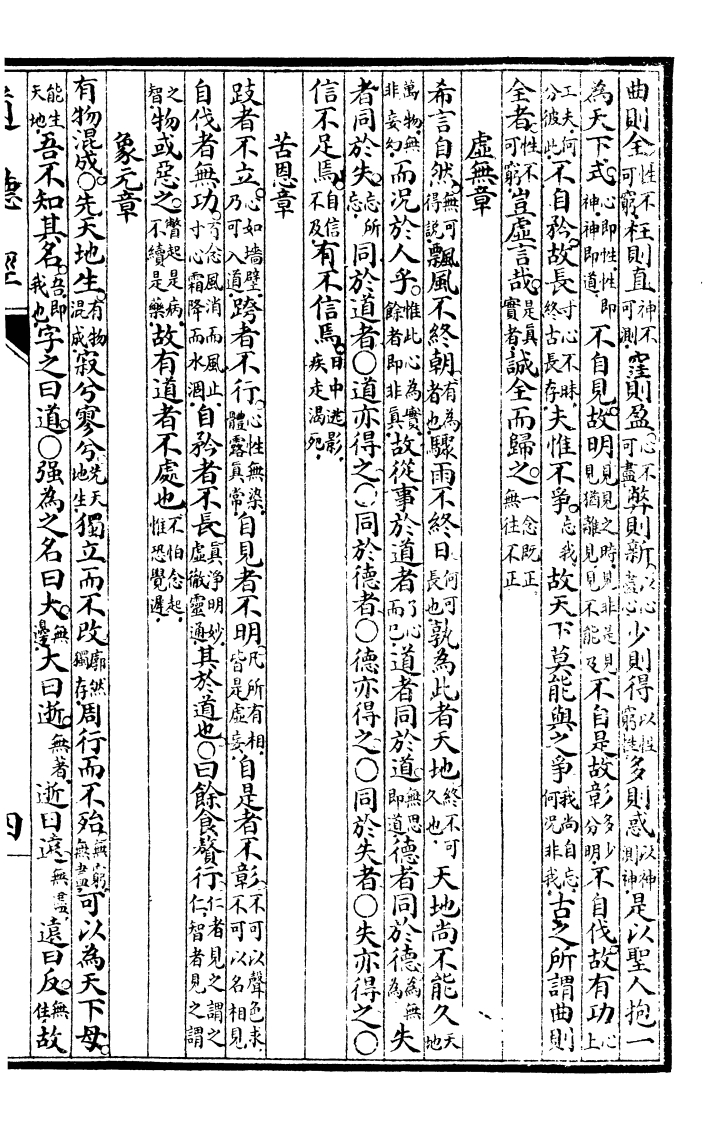 曲則全性不可窮枉則直神不可測窪則盈心不可盡弊則新以心盡心少則得以性窮性多則惑以神測神是以聖人抱一
為天下式心即性性即神神即道不自見故明見見之時見非是見見猶離見見不能及不自是故彰多少分明不自伐故有功心上
工夫何分彼此不自矜故長寸心不昧終古長存夫惟不爭忘我故天下莫能與之爭我尚自忘何況非我古之所謂曲則
全者性不可窮豈虛言哉是真實者誠全而歸之一念既正無往不正
虛無章
希言自然無可得說飄風不終朝有為者也驟雨不終日何可長也孰為此者天地終不可久也天地尚不能久天地
萬物無非妄幻而況於人乎惟此心為實餘者即非真故從事於道者了心而已道者同於道無思即道德者同於德無為失
者同於失忘所忘同於道者〇道亦得之〇同於德者〇德亦得之〇同於失者〇失亦得之〇
信不足焉自信不及有不信焉日中逃影疾走渴死
苦恩章
跂者不立心如墻壁乃可入道跨者不行心性無染體露真常自見者不明凡所有相皆是虛妄自是者不彰不可以聲色求不可以名相見
自伐者無功念風消而風止寸心霜降而水涸自矜者不長真淨明妙虛徹靈通其於道也〇曰餘食贅行仁者見之謂之仁智者見之謂
之智物或惡之瞥起是病不續是藥故有道者不處也不怕念起惟恐覺遲
象元章
有物混成〇先天地生有物混成寂兮寥兮先天地生獨立而不改廓然獨存周行而不殆無窮無盡可以為天下母
能生天地吾不知其名吾即我也字之曰道〇强為之名曰大無邊大曰逝無著逝曰遠無盡遠曰反無住故
道德經
四